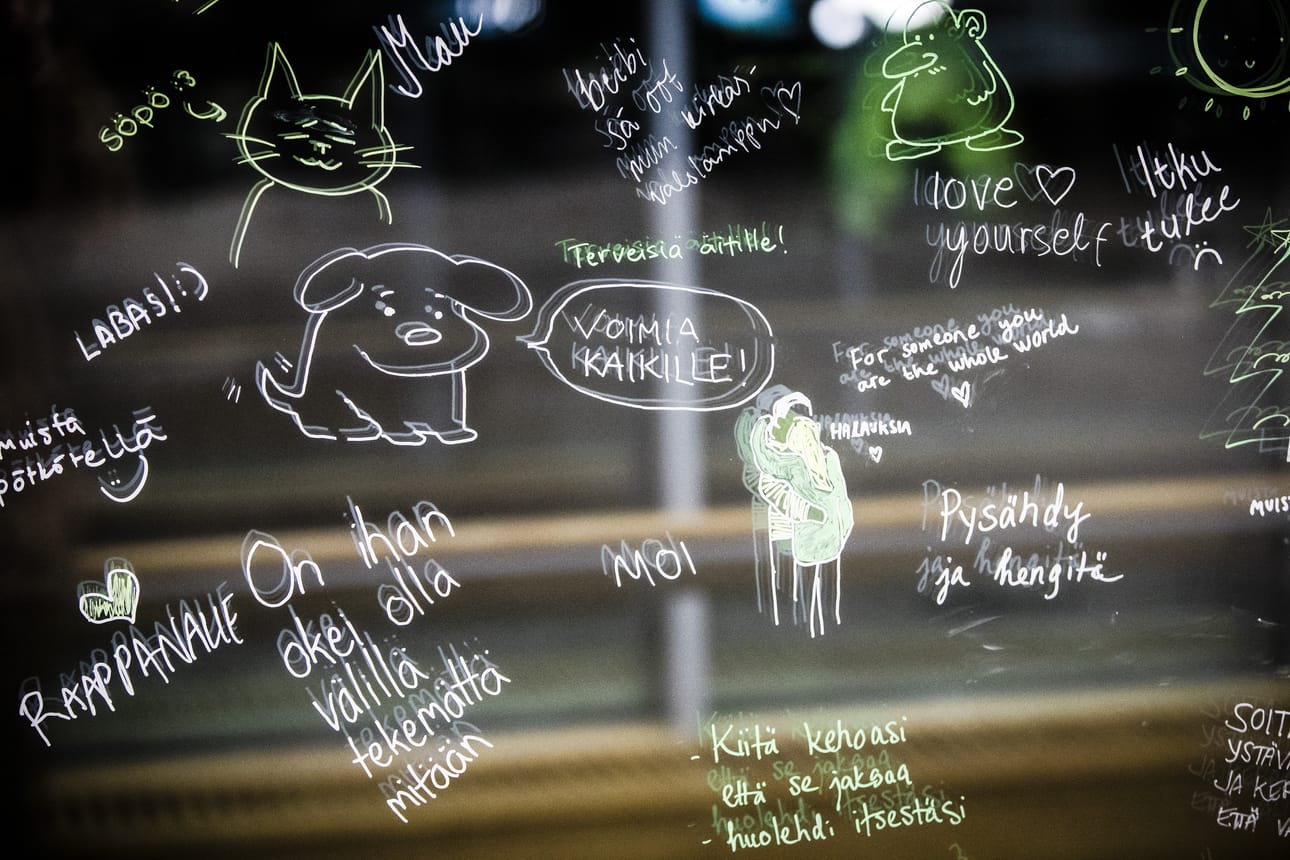 Mau
söpö
beibi
oot
ku kirkas
niin
valolamppu
love
yourself
Itku
tulee
Terveisiä äitille!
LABAS! :)
VOIMIA
KAIKILLE!
For someone you
are the whole world
HALAUKSIA
muista
pötkötellä
On ihan
okei olla
välillä
tekemättä
mitään
MOI
Pysähdy
ja hengitä
RAAPPANALLE
- Kiitä kehoasi
että se jaksaa
- huolehdi itsestäsi
JA
ETTÄ